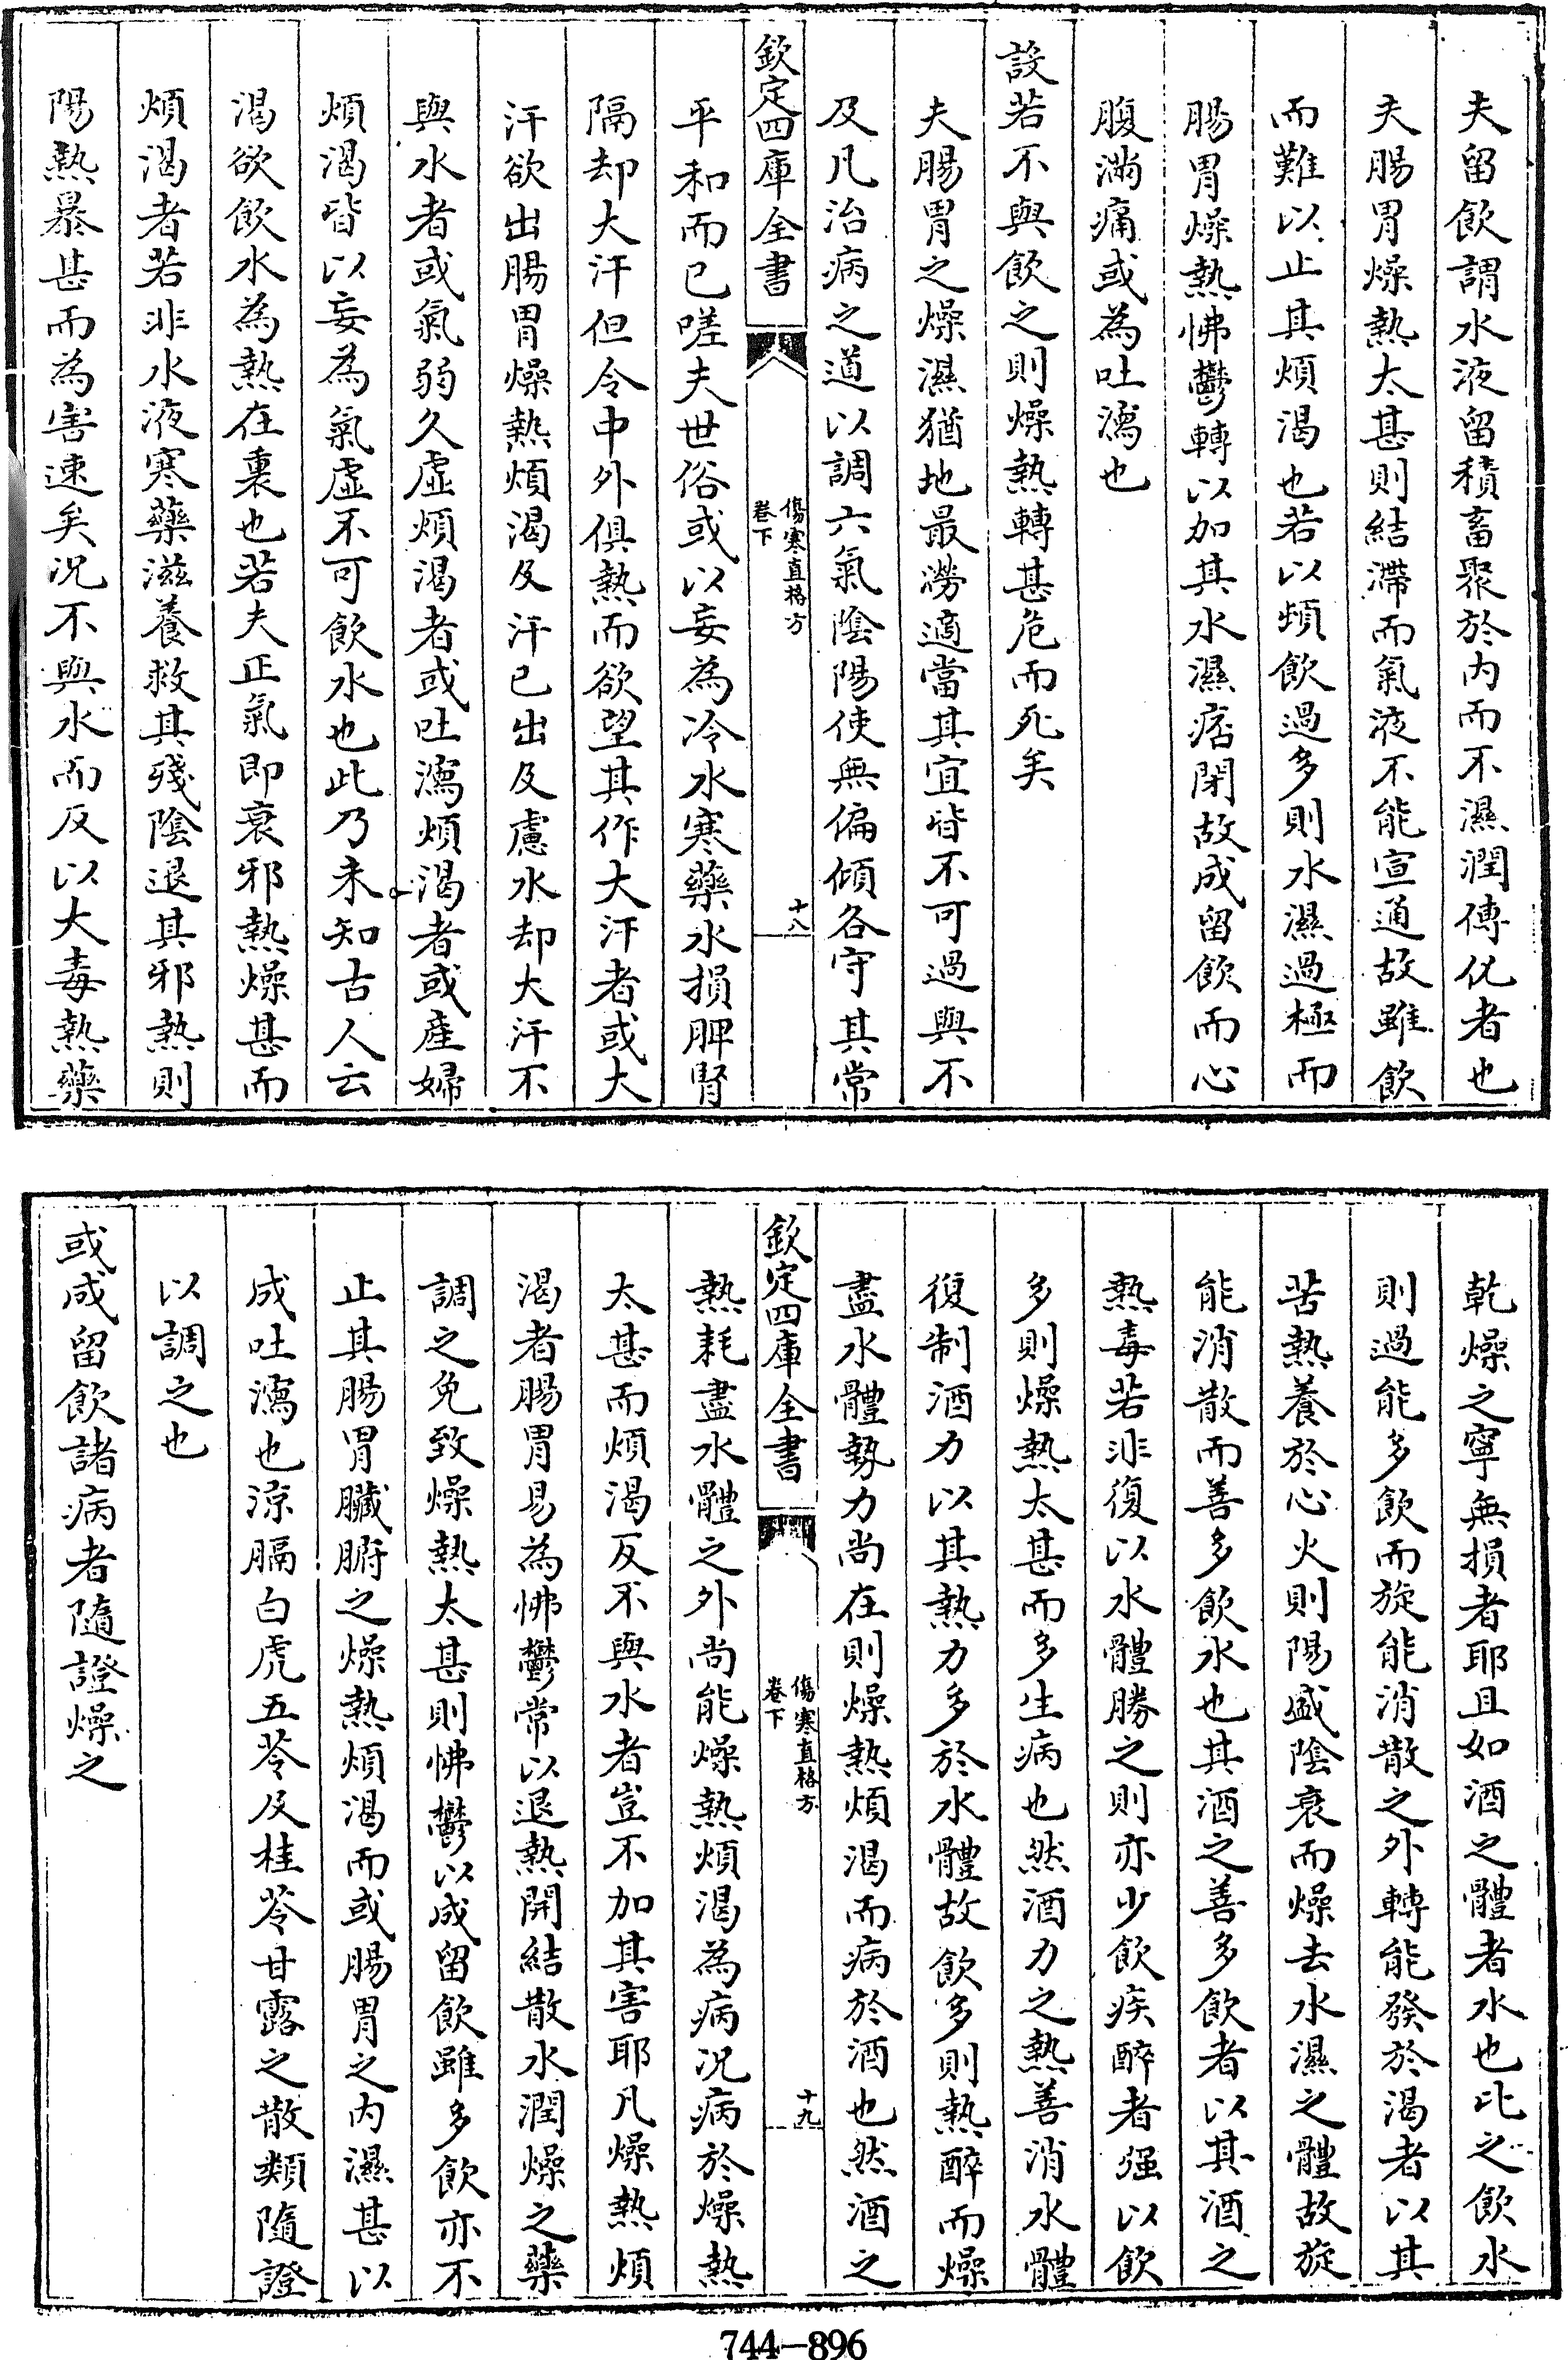 夫留飲謂水液留積畜聚於内而不濕潤傳化者也
夫腸胃燥熱太甚則結滯而氣液不能宣通故雖飲
而難以止其煩渴也若以頻飲過多則水濕過極而
腸胃燥熱怫鬱轉以加其水濕痞閉故成留飲而心
腹滿痛或為吐瀉也
設若不與飲之則燥熱轉甚危而死矣
夫腸胃之燥濕猶地最澇適當其宜皆不可過與不
及凡治病之道以調六氣陰陽使無偏傾各守其常
欽定四庫全書
傷寒直格方
卷下
十八
平和而已嗟夫世俗或以妄為冷水寒藥水損脾腎
隔却大汗但令中外俱熱而欲望其作大汗者或大
汗欲出腸胃燥熱煩渴及汗已出及慮水却大汗不
與水者或氣弱久虛煩渴者或吐瀉煩渴者或産婦
煩渴皆以妄為氣虛不可飲水也此乃未知古人云
渴欲飲水為熱在裏也若夫正氣即衰邪熱燥甚而
煩渴者若非水液寒藥滋養救其殘陰退其邪熱則
陽熱暴甚而為害速矣况不與水而反以大毒熱藥
乾燥之寧無損者耶且如酒之體者水也比之飲水
則過能多飲而旋能消散之外轉能發於渴者以其
苦熱養於心火則陽盛陰衰而燥去水濕之體故旋
能消散而善多飲水也其酒之善多飲者以其酒之
熱毒若非復以水體勝之則亦少飲疾醉者强以飲
多則燥熱太甚而多生病也然酒力之熱善消水體
復制酒力以其熱力多於水體故飲多則熱醉而燥
盡水體勢力尚在則燥熱煩渴而病於酒也然酒之
欽定四庫全書
傷寒直格方
卷下
十九
熱耗盡水體之外尚能燥熱煩渴為病况病於燥熱
太甚而煩渴反不與水者豈不加其害耶凡燥熱煩
渴者腸胃易為怫鬱常以退熱開結散水潤燥之藥
調之免致燥熱太甚則怫鬱以成留飲雖多飲亦不
止其腸胃臟腑之燥熱煩渴而或腸胃之内濕甚以
成吐瀉也涼膈白虎五苓及桂苓甘露之散類隨證
以調之也
或成留飲諸病者隨證燥之
744-896